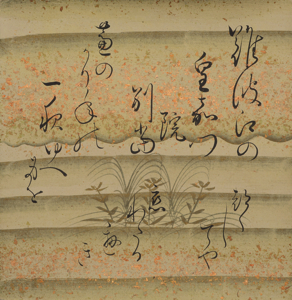 難波江の
皇嘉門
院
別当
蘆の
かりねの
一夜ゆへみを
つくし
てや
恋
わたる
べき